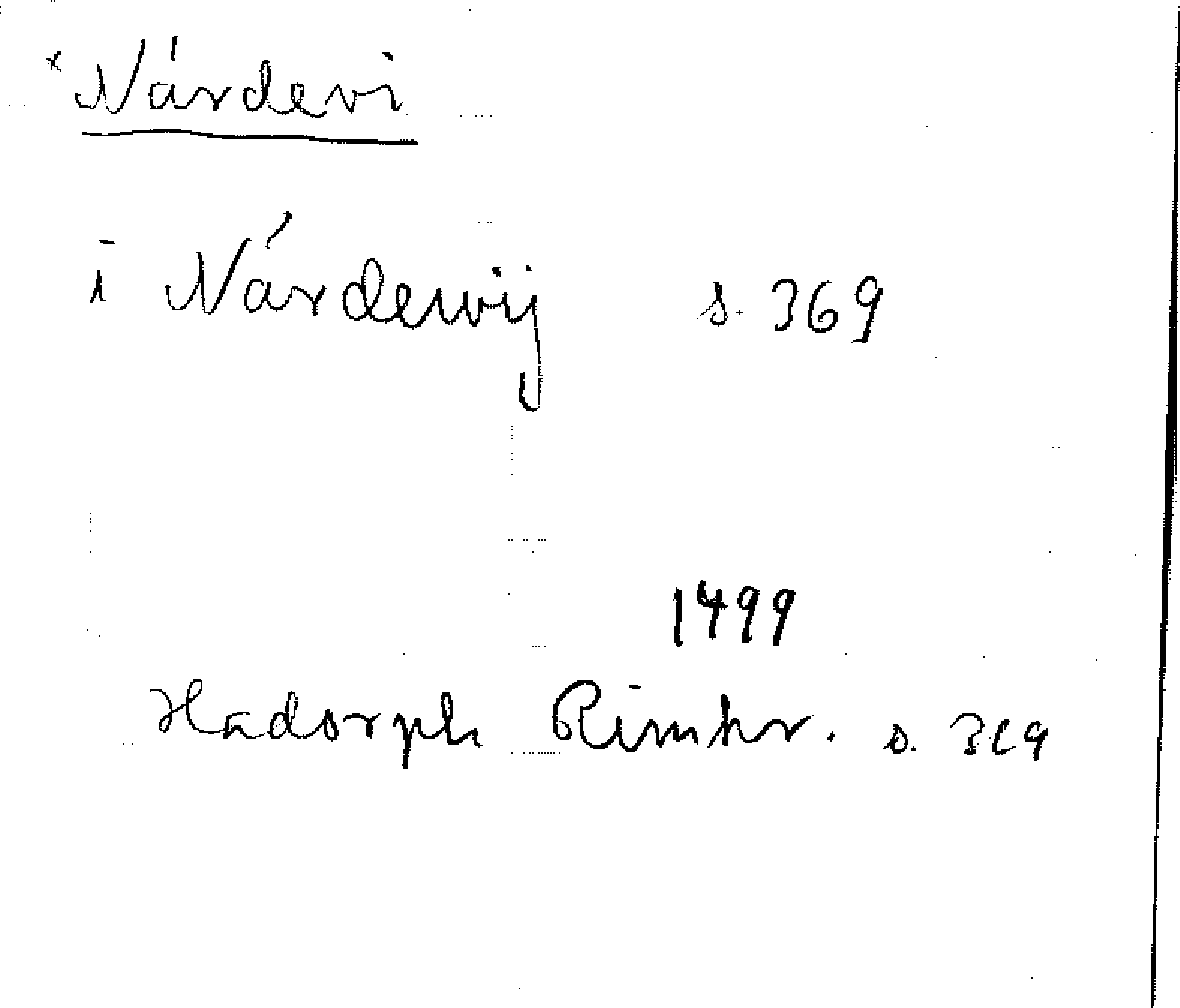 × Närdevi
i Närdewij s. 369
1499
Hadorph Rimkr. s. 369